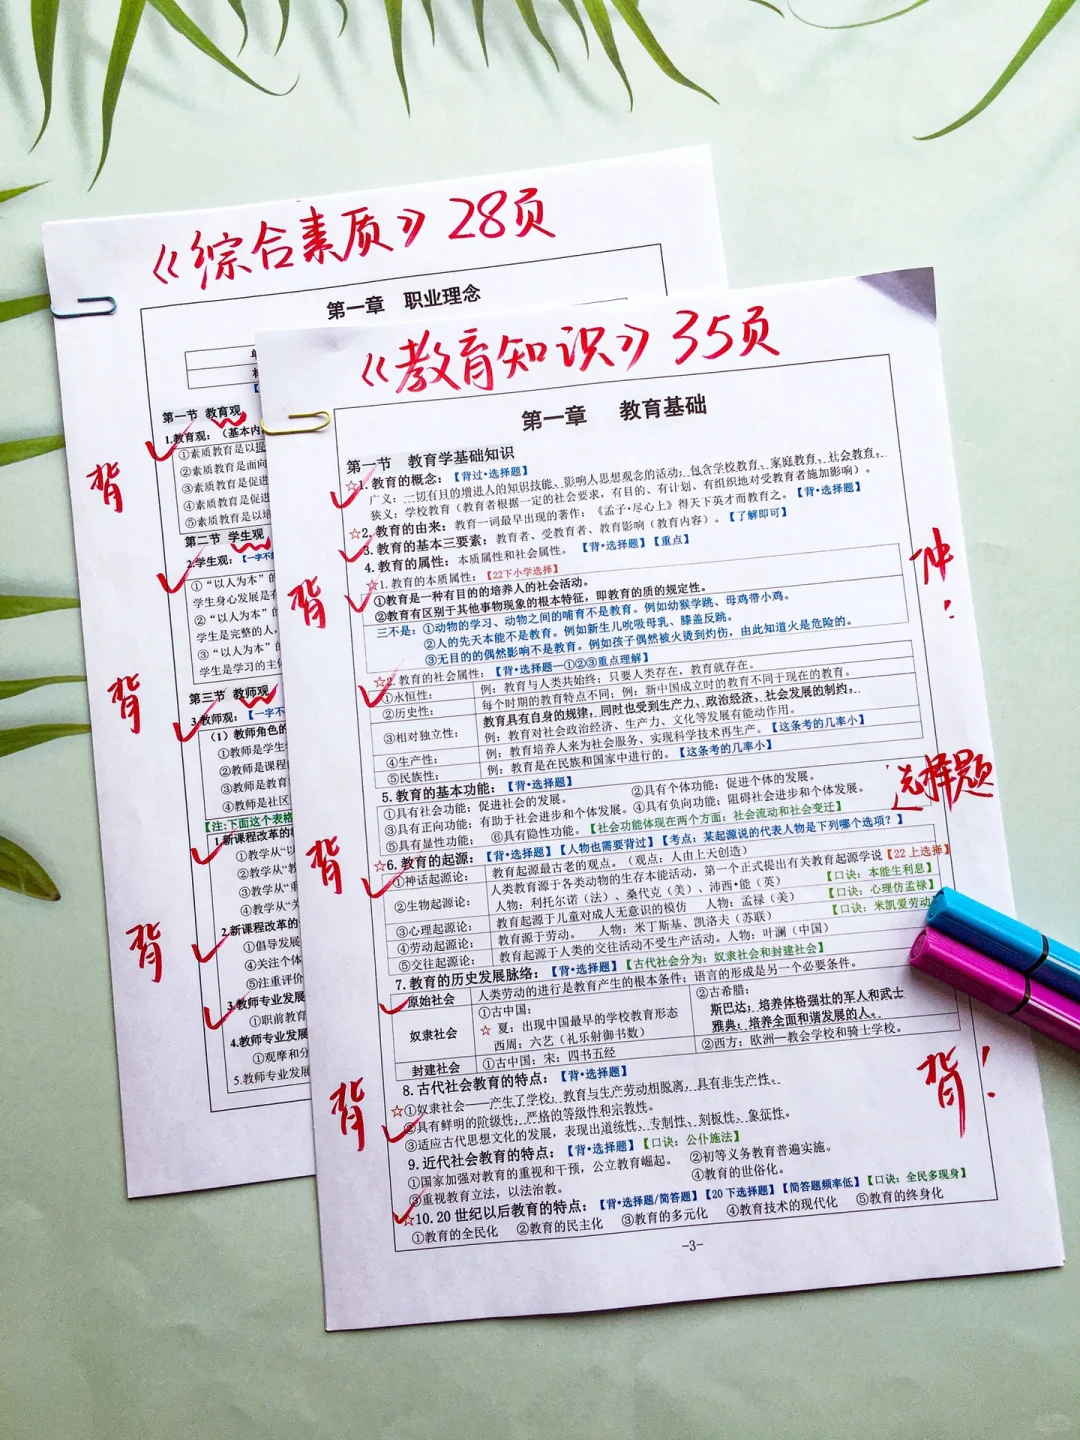 《综合素质》28页
第一章 职业理念
第一节 教育观
1.教育观：（基本内
①素质教育是以提
②素质教育是面向
③素质教育是促进
④素质教育是促进
⑤素质教育是以培
第二节 学生观
2.学生观：【一字不
①“以人为本”的
学生身心发展是有
②“以人为本”的
学生是完整的人，
③“以人为本”的
学生是学习的主体
第三节 教师观
3.教师观：【一字不
（1）教师角色的
①教师是学生
②教师是课程
③教师是教育
④教师是社区
【注：下面这个表格
1.新课程改革的
①教学从“以
②教学从“
③教学从“重
④教学从“关
2.新课程改革的
①倡导发展
④关注个体
⑤注重评价
3.教师专业发展
①职前教育
4.教师专业发展
①观摩和分
5.教师专业发展
背
背
背
《教育知识》35页
第一章 教育基础
第一节 教育学基础知识
☆1.教育的概念：【背过·选择题】
广义：一切有目的增进人的知识技能、影响人思想观念的活动；包含学校教育、家庭教育、社会教育。
狭义：学校教育（教育者根据一定的社会要求，有目的、有计划、有组织地对受教育者施加影响）。
☆2.教育的由来：教育一词最早出现的著作：《孟子·尽心上》得天下英才而教育之。【背·选择题】
3.教育的基本三要素：教育者、受教育者、教育影响（教育内容）。【了解即可】
4.教育的属性：本质属性和社会属性。【背·选择题】【重点】
☆1.教育的本质属性：【22下小学选择】
①教育是一种有目的的培养人的社会活动。
②教育有区别于其他事物现象的根本特征，即教育的质的规定性。
三不是：①动物的学习、动物之间的哺育不是教育。例如幼猴学跳、母鸡带小鸡。
②人的先天本能不是教育。例如新生儿吮吸母乳、膝盖反跳。
③无目的的偶然影响不是教育。例如孩子偶然被火烫到灼伤，由此知道火是危险的。
☆2.教育的社会属性：【背·选择题—①②③重点理解】
①永恒性： 例：教育与人类共始终：只要人类存在，教育就存在。
②历史性： 每个时期的教育特点不同；例：新中国成立时的教育不同于现在的教育。
③相对独立性： 教育具有自身的规律，同时也受到生产力、政治经济、社会发展的制约。
例：教育对社会政治经济、生产力、文化等发展有能动作用。
④生产性： 例：教育培养人来为社会服务、实现科学技术再生产。【这条考的几率小】
⑤民族性： 例：教育是在民族和国家中进行的。【这条考的几率小】
5.教育的基本功能：【背·选择题】
①具有社会功能：促进社会的发展。 ②具有个体功能：促进个体的发展。
③具有正向功能：有助于社会进步和个体发展。④具有负向功能：阻碍社会进步和个体发展。
⑤具有显性功能； ⑥具有隐性功能。【社会功能体现在两个方面：社会流动和社会变迁】
☆6.教育的起源：【背·选择题】【人物也需要背过】【考点：某起源说的代表人物是下列哪个选项？】
①神话起源论： 教育起源最古老的观点。（观点：人由上天创造）
②生物起源论： 人类教育源于各类动物的生存本能活动，第一个正式提出有关教育起源学说【22上选择】
人物：利托尔诺（法）、桑代克（美）、沛西•能（英） 【口诀：本能生利息】
③心理起源论： 教育起源于儿童对成人无意识的模仿 人物：孟禄（美） 【口诀：心理仿孟禄】
④劳动起源论： 教育源于劳动。 人物：米丁斯基、凯洛夫（苏联） 【口诀：米凯爱劳动】
⑤交往起源论： 教育起源于人类的交往活动不受生产活动。人物：叶澜（中国）
7.教育的历史发展脉络：【背·选择题】【古代社会分为：奴隶社会和封建社会】
原始社会 人类劳动的进行是教育产生的根本条件；语言的形成是另一个必要条件。
奴隶社会 ①古中国：
☆ 夏：出现中国最早的学校教育形态
西周：六艺（礼乐射御书数）
②古希腊：
斯巴达：培养体格强壮的军人和武士
雅典：培养全面和谐发展的人。
封建社会 ①古中国：宋：四书五经 ②西方：欧洲—教会学校和骑士学校。
8.古代社会教育的特点：【背·选择题】
☆①奴隶社会——产生了学校；教育与生产劳动相脱离，具有非生产性。
②具有鲜明的阶级性，严格的等级性和宗教性。
③适应古代思想文化的发展，表现出道统性、专制性、刻板性、象征性。
9.近代社会教育的特点：【背·选择题】【口诀：公仆施法】
①国家加强对教育的重视和干预，公立教育崛起。 ②初等义务教育普遍实施。
③重视教育立法，以法治教。 ④教育的世俗化。
☆10.20世纪以后教育的特点：【背·选择题/简答题】【20下选择题】【简答题频率低】【口诀：全民多现身】
①教育的全民化 ②教育的民主化 ③教育的多元化 ④教育技术的现代化 ⑤教育的终身化
-3-
背
背
背
冲！
选择题
背！